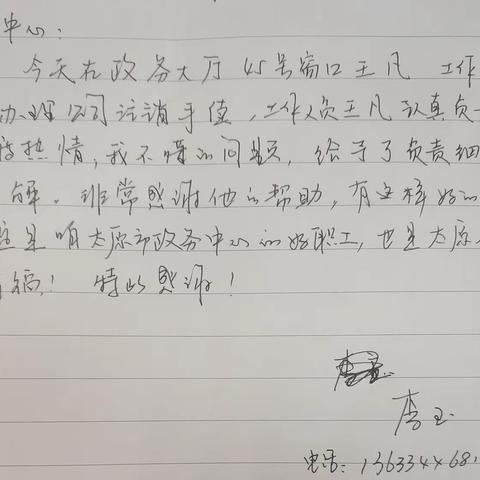 中心:
今天在政务大厅45号窗口王凡 工作
办理公司注销手续,工作人员王凡认真负
热情,我不懂的问题,给予了负责细
解。非常感谢他的帮助,有这样好的
是咱太原市政务中心的好职工,也是太原
福! 特此感谢!
李玉
电话:1363344681